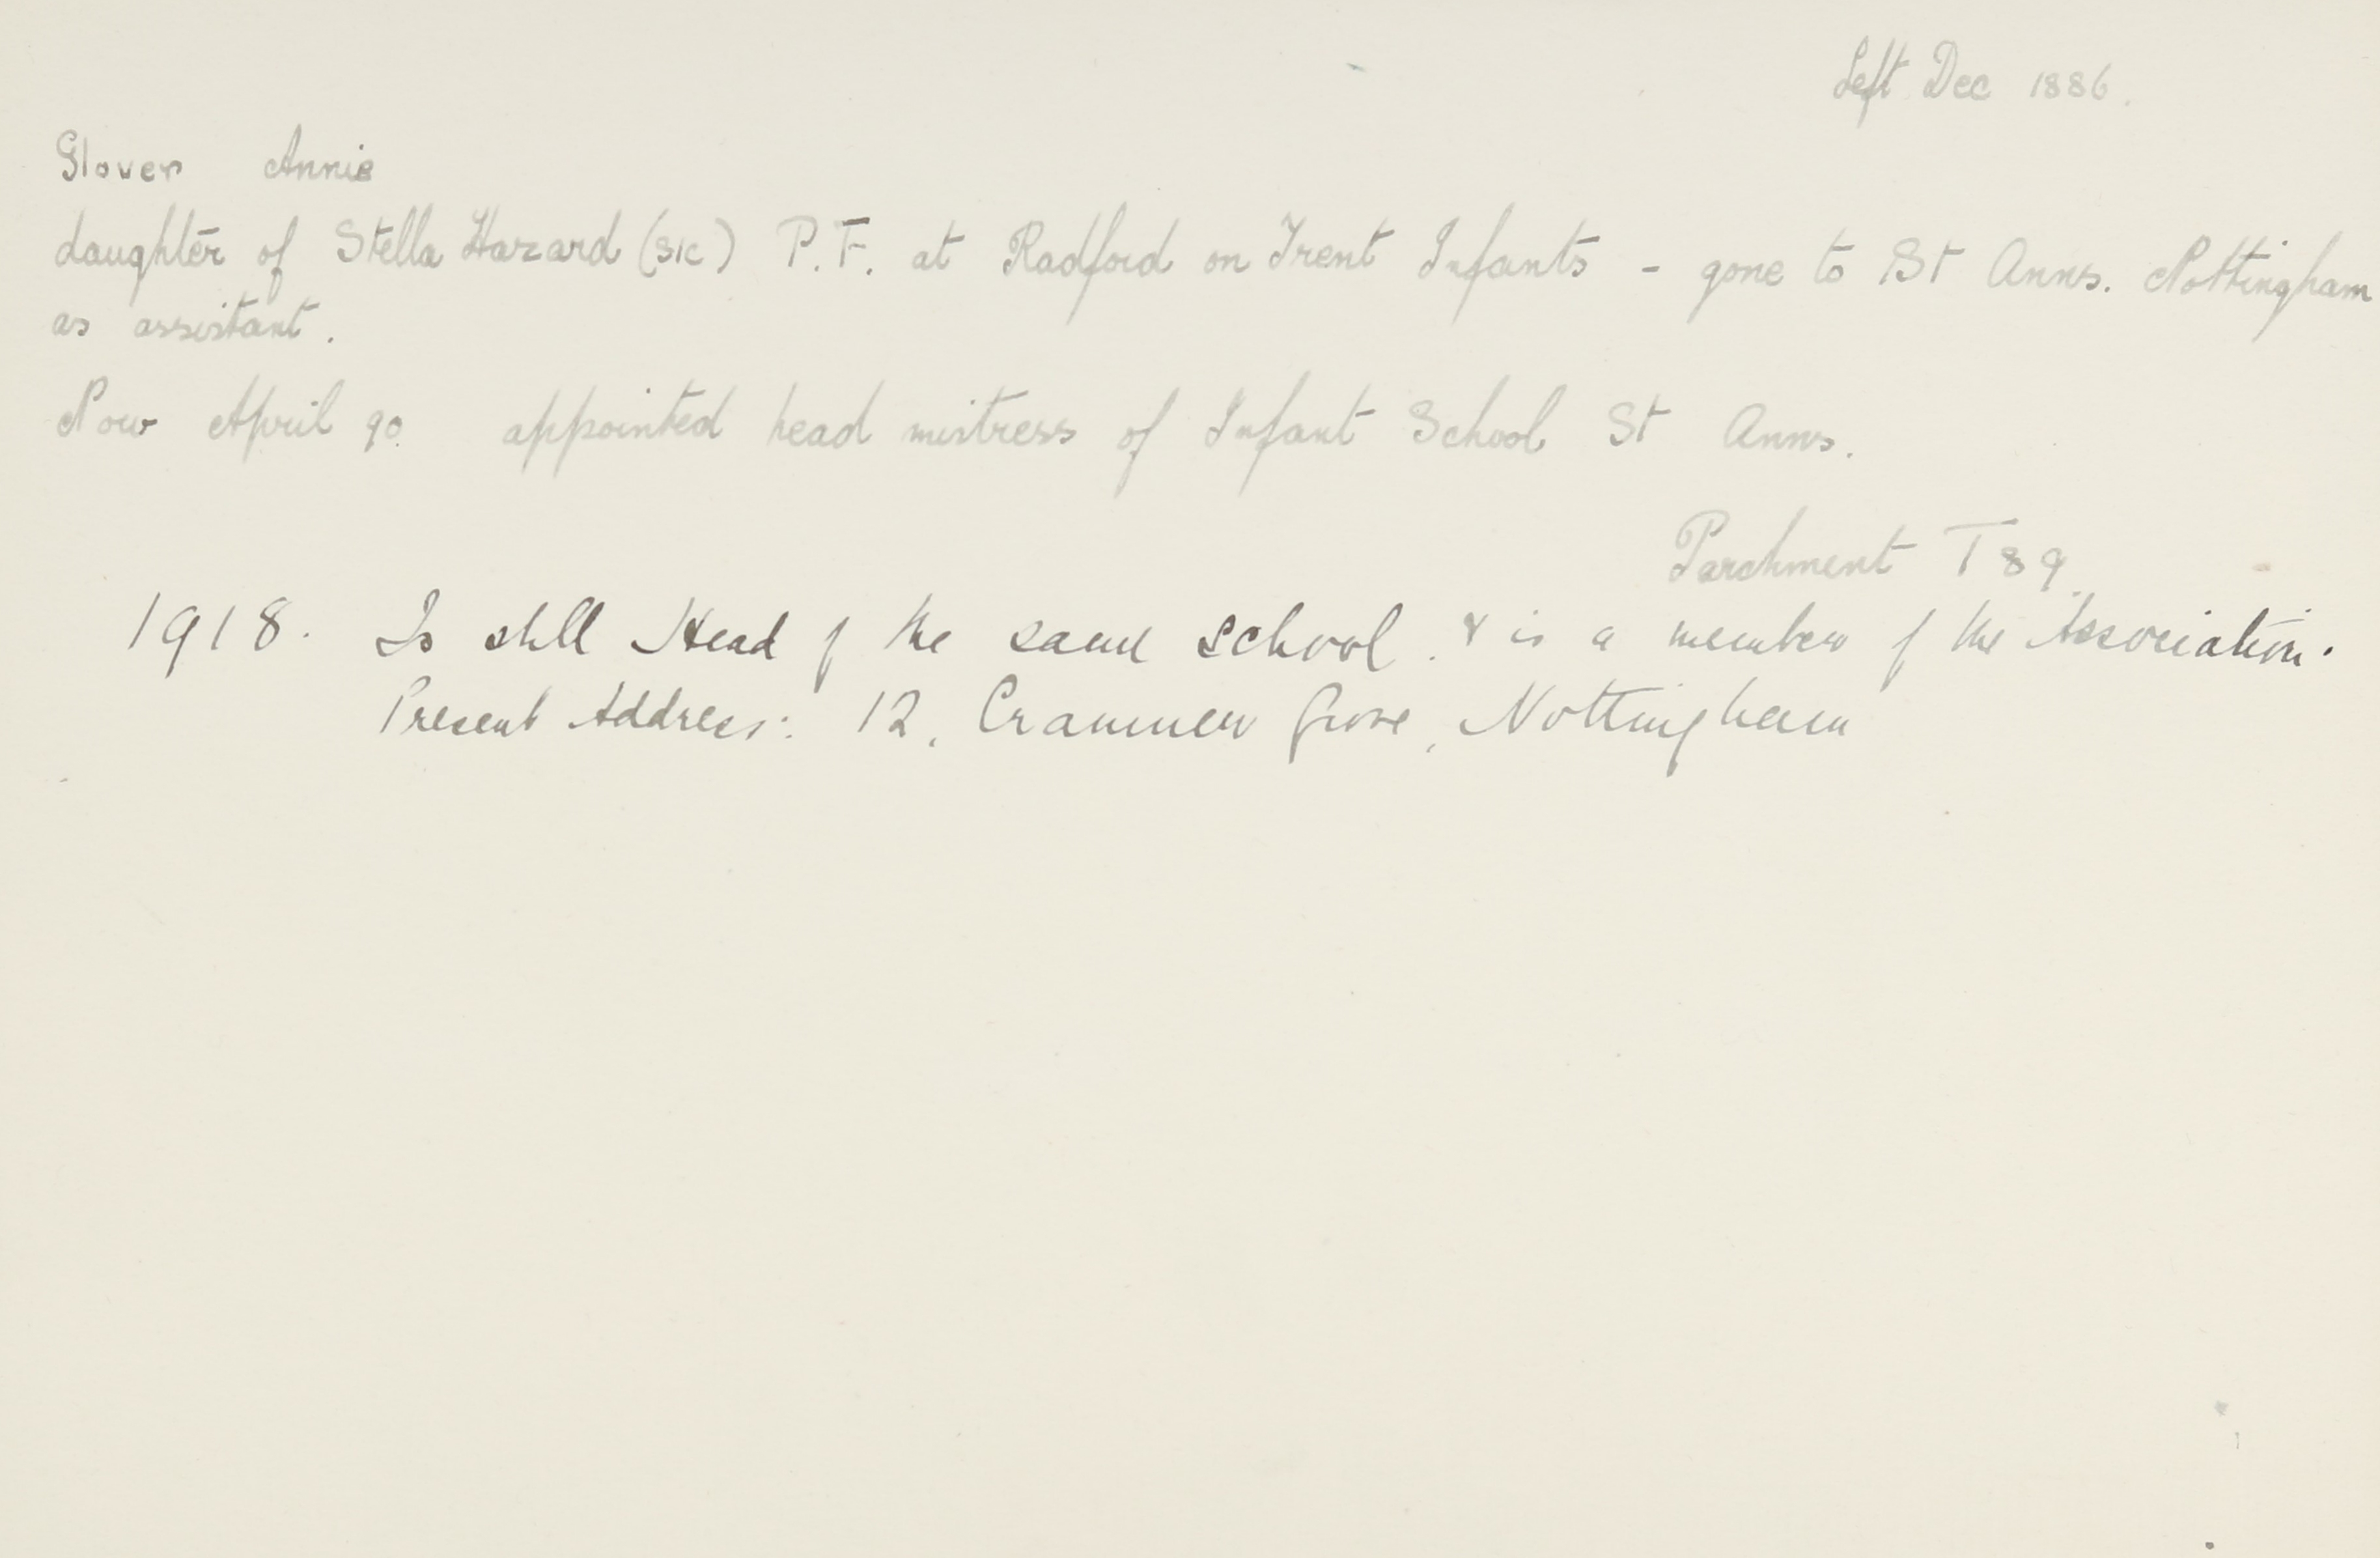 Left Dec 1886.
Glover Annie
daughter of Stella Hazard (sic) P.T. at Radford on Trent Infants - gone to St Anns. Nottingham
as assistant.
Now April 90 appointed head mistress of Infant School St Anns.
Parchment T 89.
1918. Is still Head of the same school. & is a member of the Association.
Present Address: 12, Cranmer Grove, Nottingham